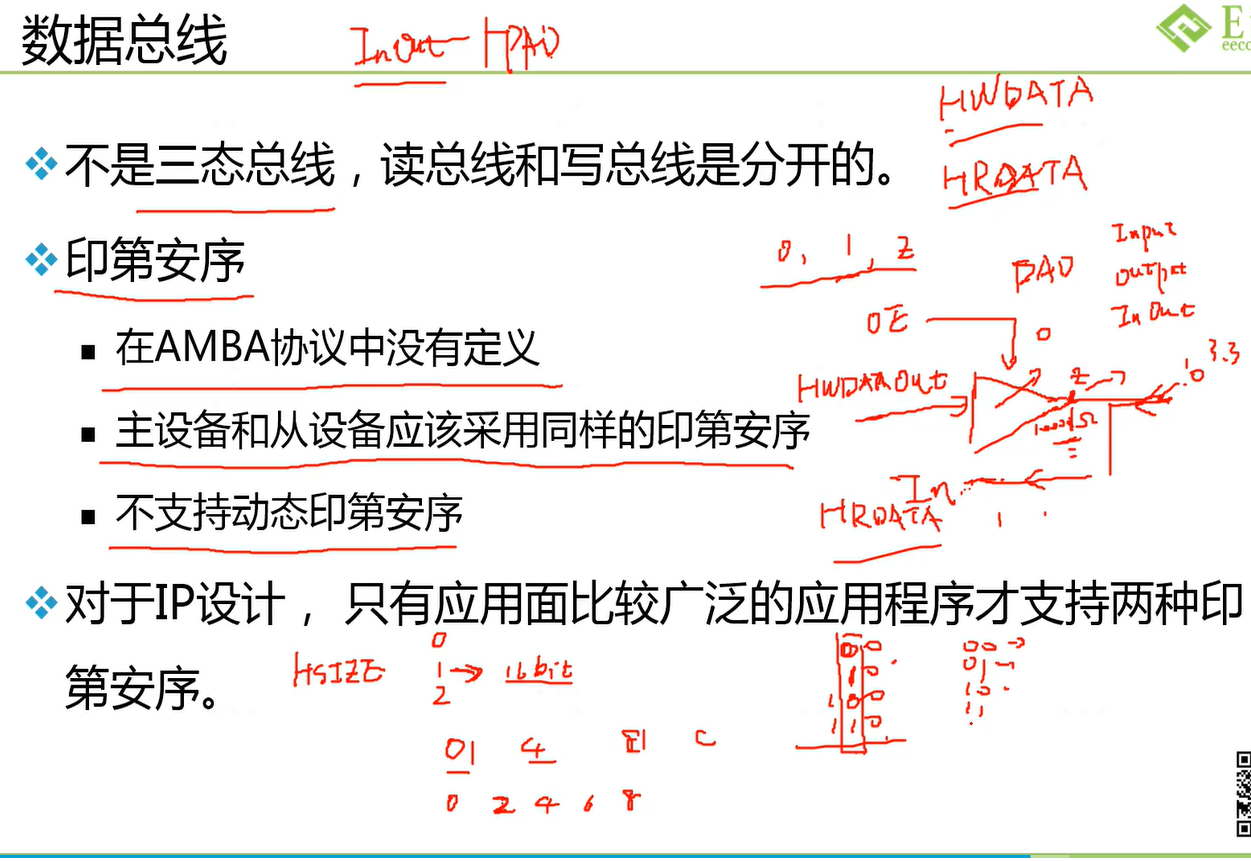 数据总线
InOut
不是三态总线，读总线和写总线是分开的。
HWDATA
HRDATA
印第安序
0, 1, Z
PAD
Input
Output
InOut
在AMBA协议中没有定义
OE
0
3.3
Z
主设备和从设备应该采用同样的印第安序
不支持动态印第安序
In
HRDATA
对于IP设计， 只有应用面比较广泛的应用程序才支持两种印
第安序。
HSIZE
0
1 → 16bit
2
00
01
10
11
4
C
0 2 4 6 8